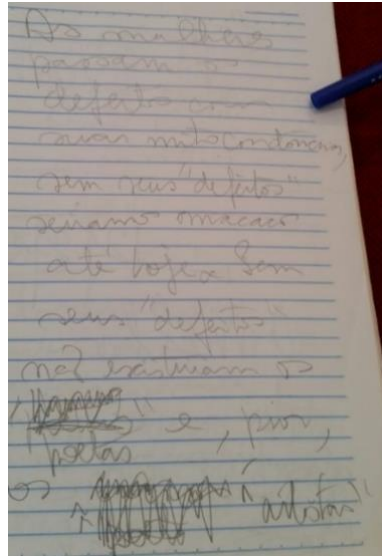 As mulheres
passam o
defeito com
suas mitocôndrias,
sem seus "defeitos"
seríamos macacos
até hoje. Sem
seus "defeitos"
não existiriam os
poetas" e, pior,
os "artistas"